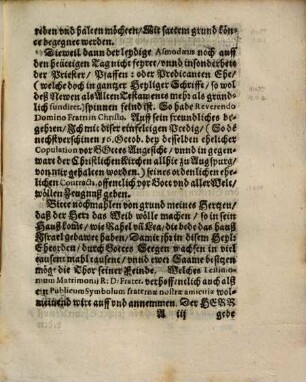 reden vnd halten möchten / Mit sattem grund kön⸗
ne begegnet werden.
Dieweil dann der leydige Asmodæus noch auff
den heütigen Tag nicht feyret / vnnd insonderheit
der Priester / Pfaffen: oder Predicanten Ehe /
( welche doch in gantzer Heyliger Schrifft / so wol
deß Newen als Alten Testaments mehr als grund⸗
lich fundiret.) spinnen feind ist. So habe Reverendo
Domino Fratri in Christo, Auff sein freundliches be⸗
gehren / Ich mit diser einfeltigen Predig / ( So de
nechstverschinen 16. Octob. bey desselben ehelicher
Copulation vor GOttes Angesicht / vnnd in gegen⸗
wart der Christlichen Kirchen allhie zu Augspurg /
von mir gehalten worden.) seines ordenlichen ehe⸗
lichen Contracts, offentlich vor Gott vnd aller Welt /
wöllen Zeugnuß geben.
Bitte nochmahlen von grund meines Hertzen /
daß der Herr das Weib wölle machen / so in sein
Hauß kom̃t / wie Rahel vñ Lea / die bede das hauß
Israel gebawet haben / Damit jhr in disem Heyl:
Eheorden / durch Gottes Segen wachsen in viel
tausent mahl tausent / vnnd ewer Saame besitzen
mög die Thor seiner Feinde. Welches Testimo⸗
nium Matrimonii R: D: Frater. verhoffentlich auch alß
ein Publicum Symbolum fraternæ nostræ amicitiæ wol⸗
meinend wirt auff vnd annemmen. Der HERR
A iij gebe